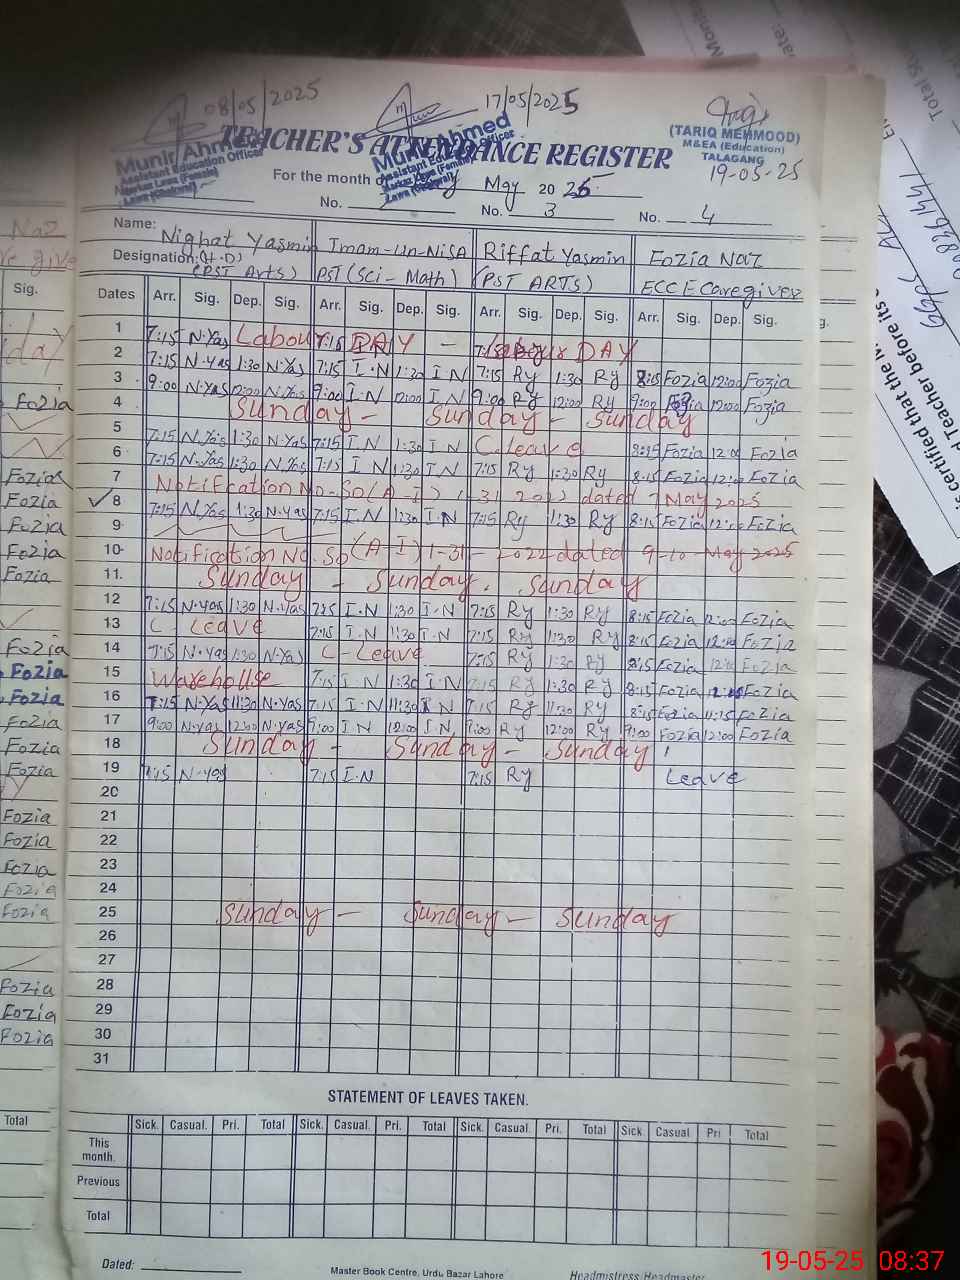 08/05/2025 17/05/2025
TEACHER'S ATTENDANCE REGISTER
Munir Ahmed
Assistant Education Officer
Markaz Lawa (Female)
Lawa (Talagang)
Munir Ahmed
Assistant Education Officer
Markaz Lawa (Female)
(TARIQ MEHMOOD)
M&EA (Education)
TALAGANG
19-05-25
For the month of May 2025
No. No. 3 No. 4
Name: Nighat Yasmin Imam-Un-NiSA Riffat Yasmin Fozia Naz
Designation: (H.D) (PST Arts) PST (Sci-Math) (PST ARTS) ECCE Caregiver
Dates Arr. Sig. Dep. Sig. Arr. Sig. Dep. Sig. Arr. Sig. Dep. Sig. Arr. Sig. Dep. Sig.
1 7:15 N.Yas Labour DAY - Labour DAY
2 7:15 N.Yas 1:30 N.Yas 7:15 I.N 1:30 I N 7:15 Ry 1:30 Ry 8:15 Fozia 12:00 Fozia
3 9:00 N.Yas 12:00 N.Yas 9:00 I.N 12:00 I N 9:00 Ry 12:00 Ry 9:00 Fozia 12:00 Fozia
4 Sunday - Sunday - Sunday
5 7:15 N.Yas 1:30 N.Yas 7:15 I.N 1:30 I N C.leave 8:15 Fozia 12:00 Fozia
6 7:15 N.Yas 1:30 N.Yas 7:15 I N 1:30 I N 7:15 Ry 1:30 Ry 8:15 Fozia 12:00 Fozia
7 Notification No-SO(A-I) 1-31 2022 dated 7 May 2025
8 7:15 N.Yas 1:30 N.Yas 7:15 I.N 1:30 I.N 7:15 Ry 1:30 Ry 8:15 Fozia 12:00 Fozia
9
10 Notification No. SO(A-I) 1-31-2022 dated 9-10-May 2025
11. Sunday - Sunday. Sunday
12 7:15 N.Yas 1:30 N.Yas 7:15 I.N 1:30 I.N 7:15 Ry 1:30 Ry 8:15 Fozia 12:00 Fozia
13 C-Leave 7:15 I.N 1:30 I.N 7:15 Ry 1:30 Ry 8:15 Fozia 12:00 Fozia
14 7:15 N.Yas 1:30 N.Yas C-Leave 7:15 Ry 1:30 Ry 8:15 Fozia 12:00 Fozia
15 Warehouse 7:15 I.N 1:30 I.N 7:15 Ry 1:30 Ry 8:15 Fozia Fozia
16 7:15 N.Yas 11:30 N.Yas 7:15 I.N 11:30 I N 7:15 Ry 11:30 Ry 8:15 Fozia 11:15 Fozia
17 9:00 N.Yas 12:00 N.Yas 9:00 I.N 12:00 I.N 9:00 Ry 12:00 Ry 9:00 Fozia 12:00 Fozia
18 Sunday - Sunday - Sunday
19 7:15 N.Yas 7:15 I.N 7:15 Ry Leave
20
21
22
23
24
25 Sunday - Sunday - Sunday
26
27
28
29
30
31
STATEMENT OF LEAVES TAKEN.
Sick. Casual. Pri. Total Sick. Casual. Pri. Total Sick. Casual. Pri. Total Sick. Casual Pri Total
This month.
Previous
Total
Dated:
Master Book Centre, Urdu Bazar Lahore
Headmistress/Headmaster
Naz
Sig.
Fozia
Fozia
Fozia
Fozia
Fozia
Fozia
Fozia
Fozia
Fozia
Fozia
Fozia
Fozia
Fozia
Fozia
Fozia
Fozia
Fozia
Fozia
Fozia
Total
is certified that the
d Teacher before its
19-05-25 08:37